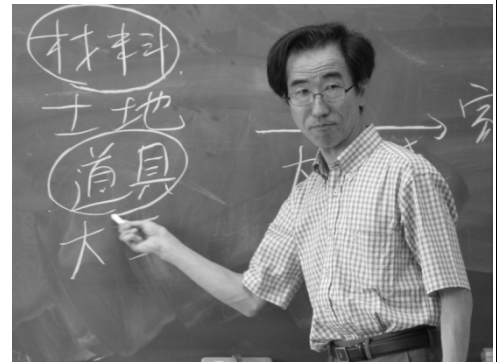 材料
土地
道具
大工